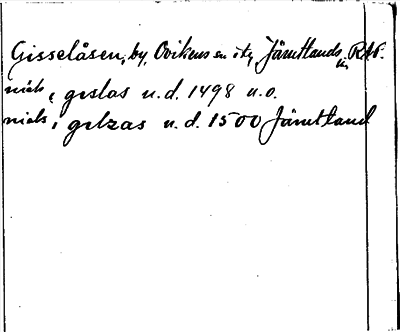 Gisselåsen, by, Ovikens sn o tg, Jämtlands län, RAP.
niels i geslas u.d. 1498 u.o.
niels i gelzas u.d. 1500 Jämtland